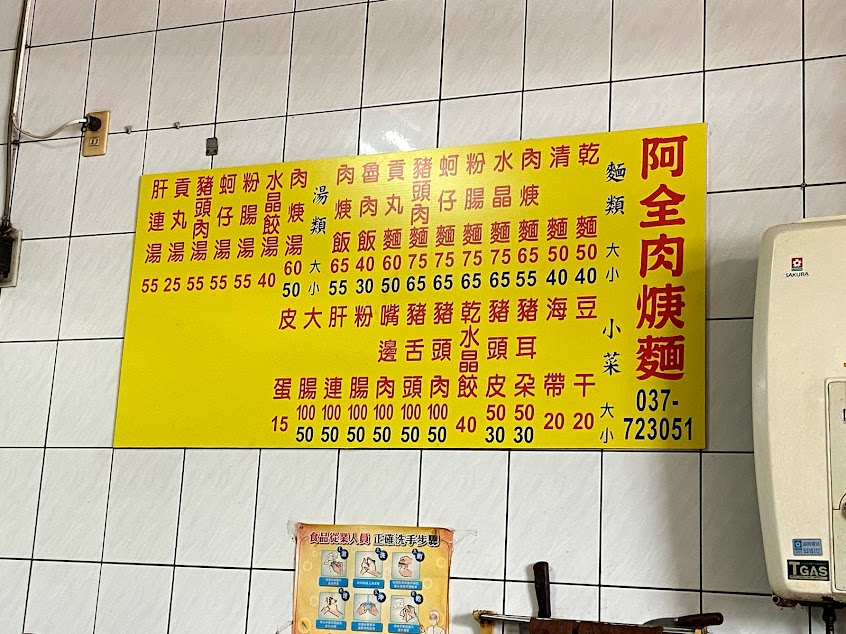 阿全肉焿麵
037-
723051
麵類 大 小
乾麵 50 40
清麵 50 40
肉焿麵 65 55
水晶麵 75 65
粉腸麵 75 65
蚵仔麵 75 65
豬頭肉麵 75 65
貢丸麵 60 50
魯肉飯 40 30
肉焿飯 65 55
湯類 大 小
肉焿湯 60 50
水晶餃湯 40
粉腸湯 55
蚵仔湯 55
豬頭肉湯 55
貢丸湯 25
肝連湯 55
小菜 大 小
豆干 20
海帶 20
豬耳朵 50 30
豬頭皮 50 30
乾水晶餃 40
豬頭肉 100 50
豬舌頭 100 50
嘴邊肉 100 50
粉腸 100 50
肝連 100 50
大腸 100 50
皮蛋 15
食品從業人員 正確洗手步驟
SAKURA
TGAS